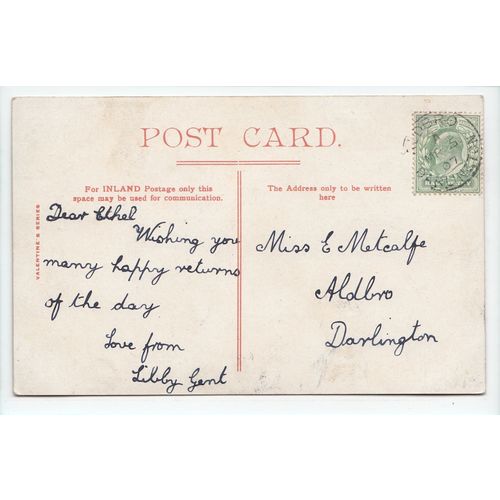 POST CARD.
For INLAND Postage only this
space may be used for communication.
The Address only to be written
here
VALENTINE'S SERIES
Dear Ethel
Wishing you
many happy returns
of the day
Love from
Libby Gent
Miss E Metcalfe
Aldbro
Darlington